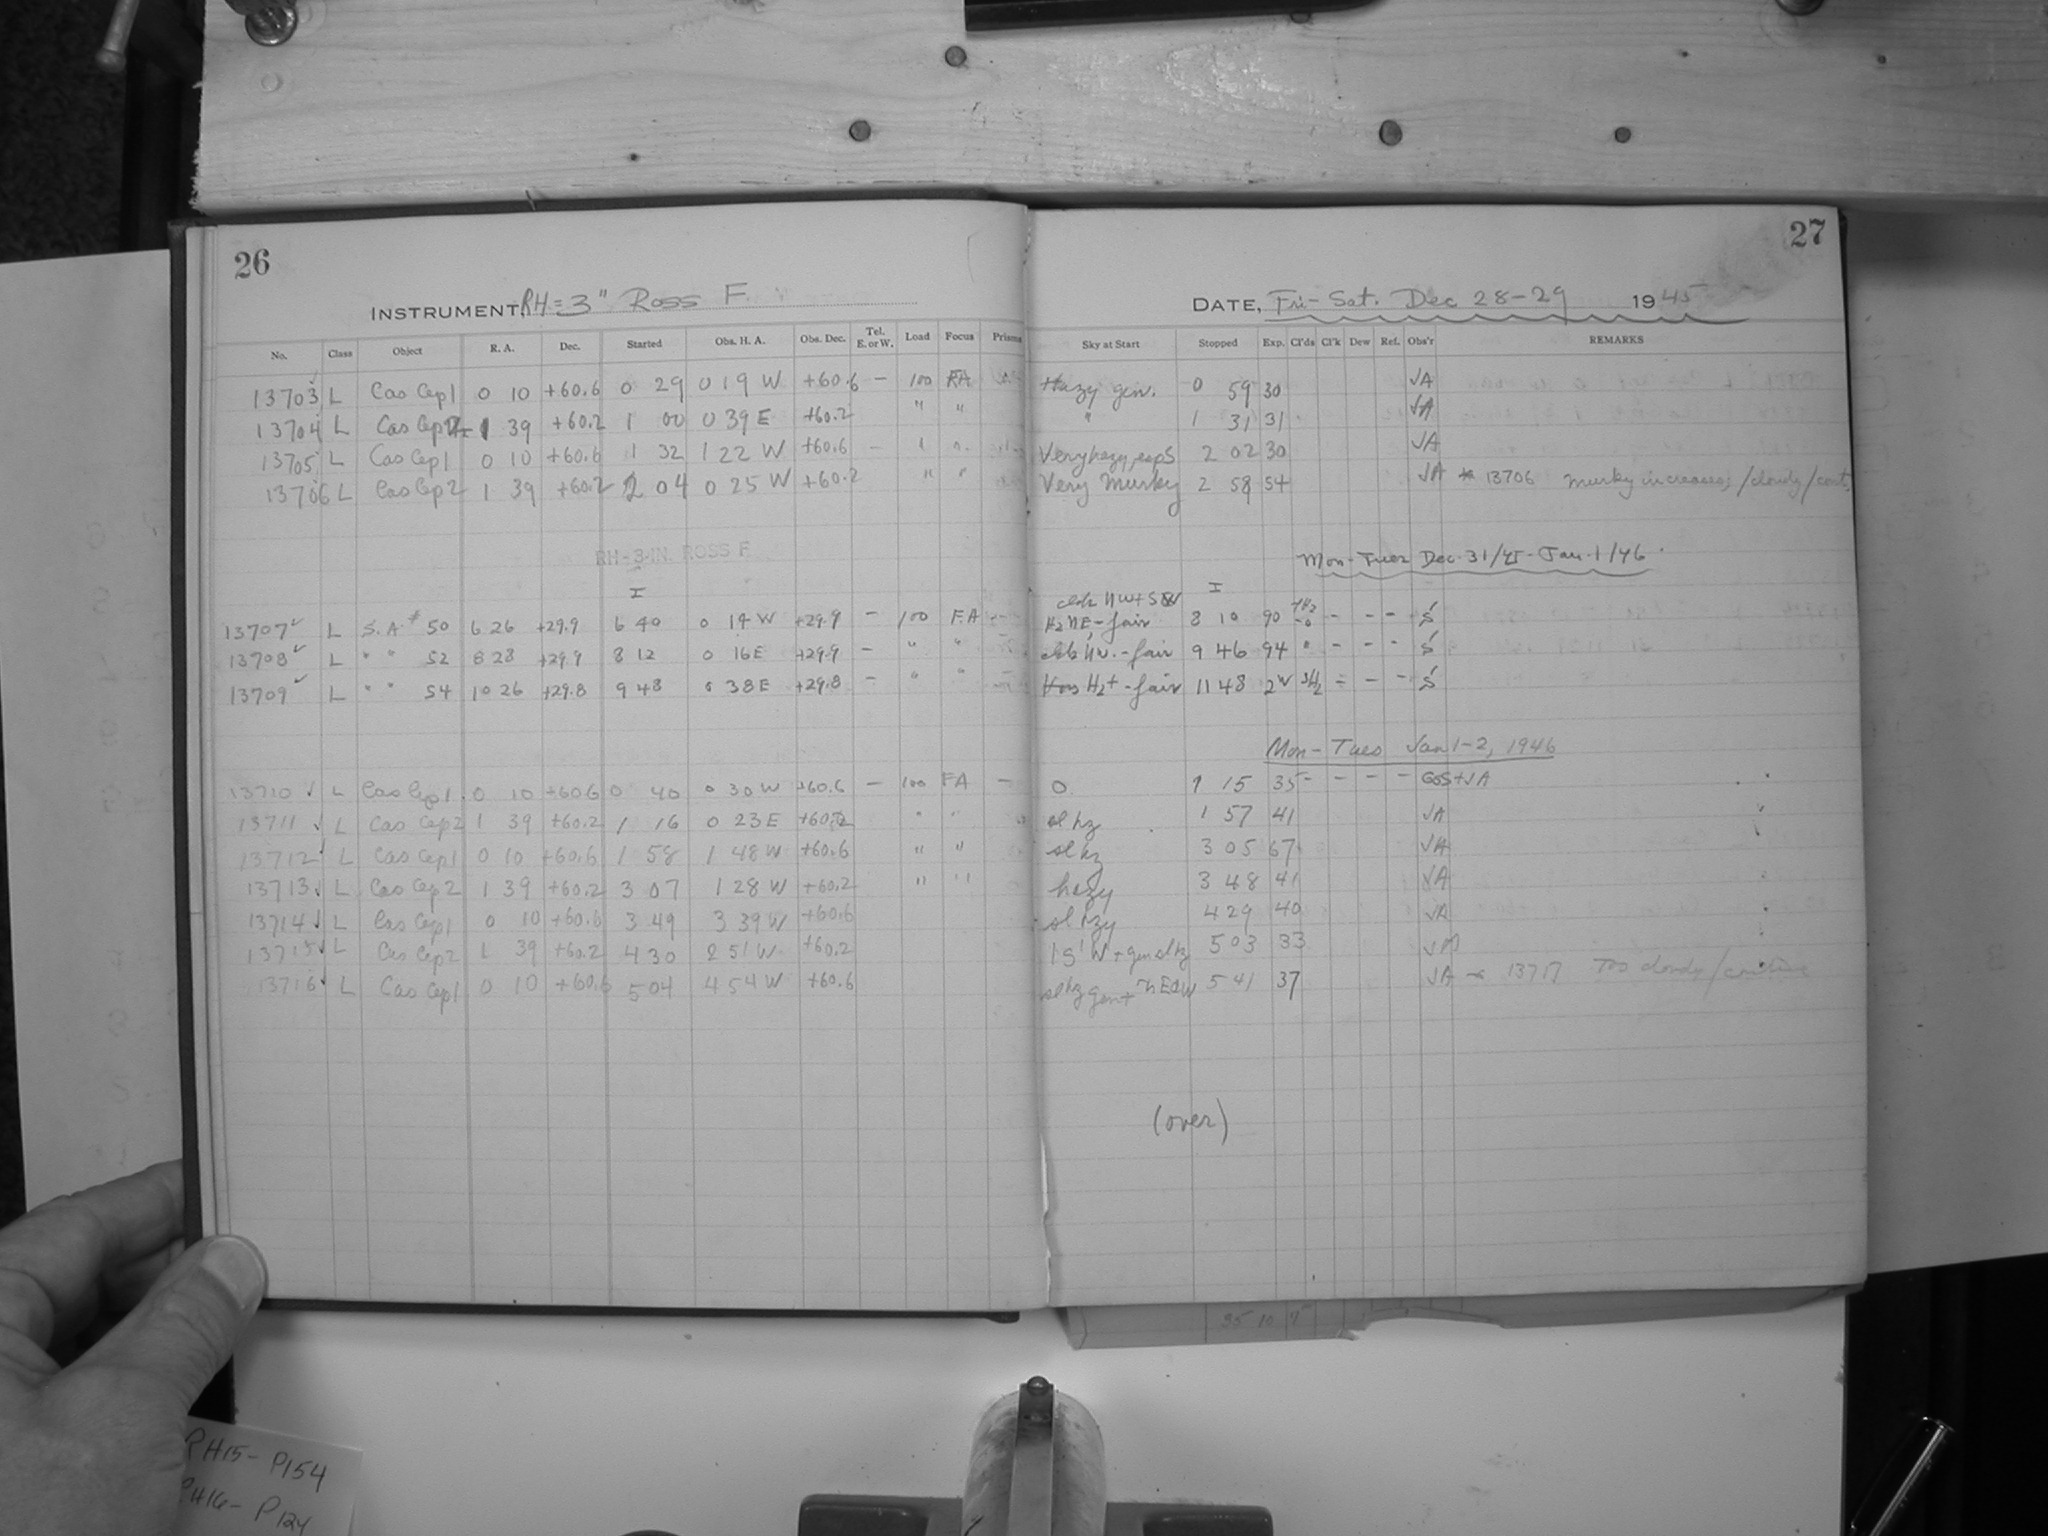 26
27
INSTRUMENT, RH = 3" Ross F
DATE, Fri-Sat. Dec 28-29 1945
No. Class Object R. A. Dec. Started Obs. H. A. Obs. Dec. Tel. E. or W. Load Focus Prisms Sky at Start Stopped Exp. Cl'ds Cl'k Dew Ref. Obs'r REMARKS
13703 L Cas Cep1 0 10 +60.6 0 29 0 19 W +60.6 — 100 FA Hazy gen. 0 59 30 JA
13704 L Cas Cep2 1 39 +60.2 1 00 0 39 E +60.2 " " " 1 31 31 JA
13705 L Cas Cep1 0 10 +60.6 1 32 1 22 W +60.6 — Very hazy, esp S 2 02 30 JA
13706 L Cas Cep2 1 39 +60.2 2 04 0 25 W +60.2 " " Very Murky 2 58 54 JA * 13706 Murky increases; /cloudy/
RH-3-IN. ROSS F
Mon-Tues Dec. 31/45 - Jan. 1/46
I I
13707 L S.A. # 50 6 26 +29.9 6 40 0 14 W +29.9 — 100 FA H2 NE, - fair 8 10 90 - - - S
13708 L " " 52 8 28 +29.9 8 12 0 16 E +29.9 — " " - fair 9 46 94 " - - - S
13709 L " " 54 10 26 +29.8 9 48 0 38 E +29.8 — " " H2+ - fair 11 48 - - - S
Mon- Tues Jan 1-2, 1946
13710 L Cas Cep1 0 10 +60.6 0 40 0 30 W +60.6 — 100 FA — O 1 15 35 - - - - GoS+JA
13711 L Cas Cep2 1 39 +60.2 1 16 0 23 E +60.2 " " sl hz 1 57 41 JA
13712 L Cas Cep1 0 10 +60.6 1 58 1 48 W +60.6 " " sl hz 3 05 67 JA
13713 L Cas Cep2 1 39 +60.2 3 07 1 28 W +60.2 " " hazy 3 48 41 JA
13714 L Cas Cep1 0 10 +60.6 3 49 3 39 W +60.6 sl hzy 4 29 40 JA
13715 L Cas Cep2 1 39 +60.2 4 30 2 51 W +60.2 5 03 33 JA
13716 L Cas Cep1 0 10 +60.6 5 04 4 54 W +60.6 sl hz gen + 5 41 37 JA * 13717 Too cloudy/continue
(over)
35 10
RH15- P154
RH16- P124